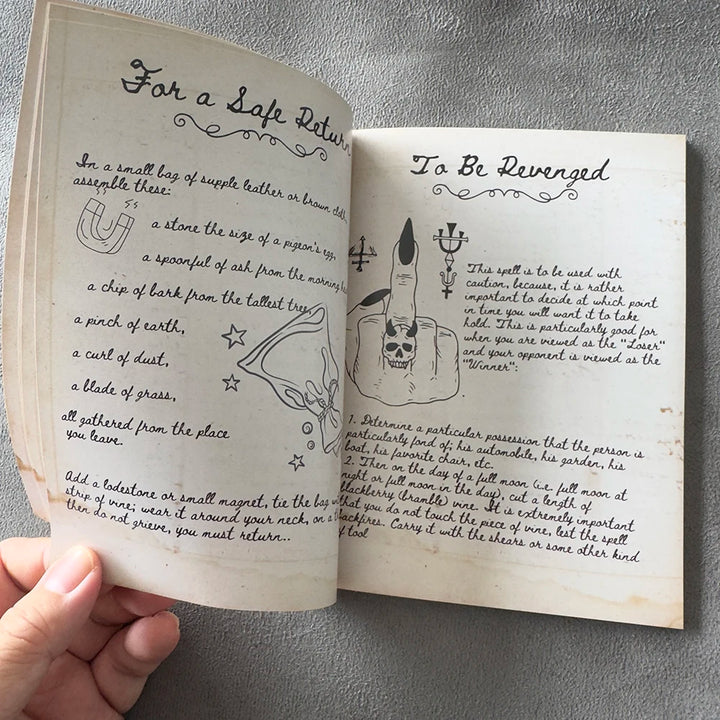 For a Safe Return
In a small bag of supple leather or brown
assemble these:
a stone the size of a pigeon's egg,
a spoonful of ash from the morning
a chip of bark from the tallest tree,
a pinch of earth,
a curl of dust,
a blade of grass,
all gathered from the place
you leave.
Add a lodestone or small magnet, tie the bag
strip of vine; wear it around your neck, on a
then do not grieve, you must return..
To Be Revenged
This spell is to be used with
caution, because, it is rather
important to decide at which point
in time you will want it to take
hold. This is particularly good for
when you are viewed as the "Loser"
and your opponent is viewed as the
"Winner":
1. Determine a particular possession that the person is
particularly fond of; his automobile, his garden, his
boat, his favorite chair, etc.
2. Then on the day of a full moon (i.e. full moon at
night or full moon in the day), cut a length of
blackberry (bramble) vine. It is extremely important
that you do not touch the piece of vine, lest the spell
backfires. Carry it with the shears or some other kind
of tool